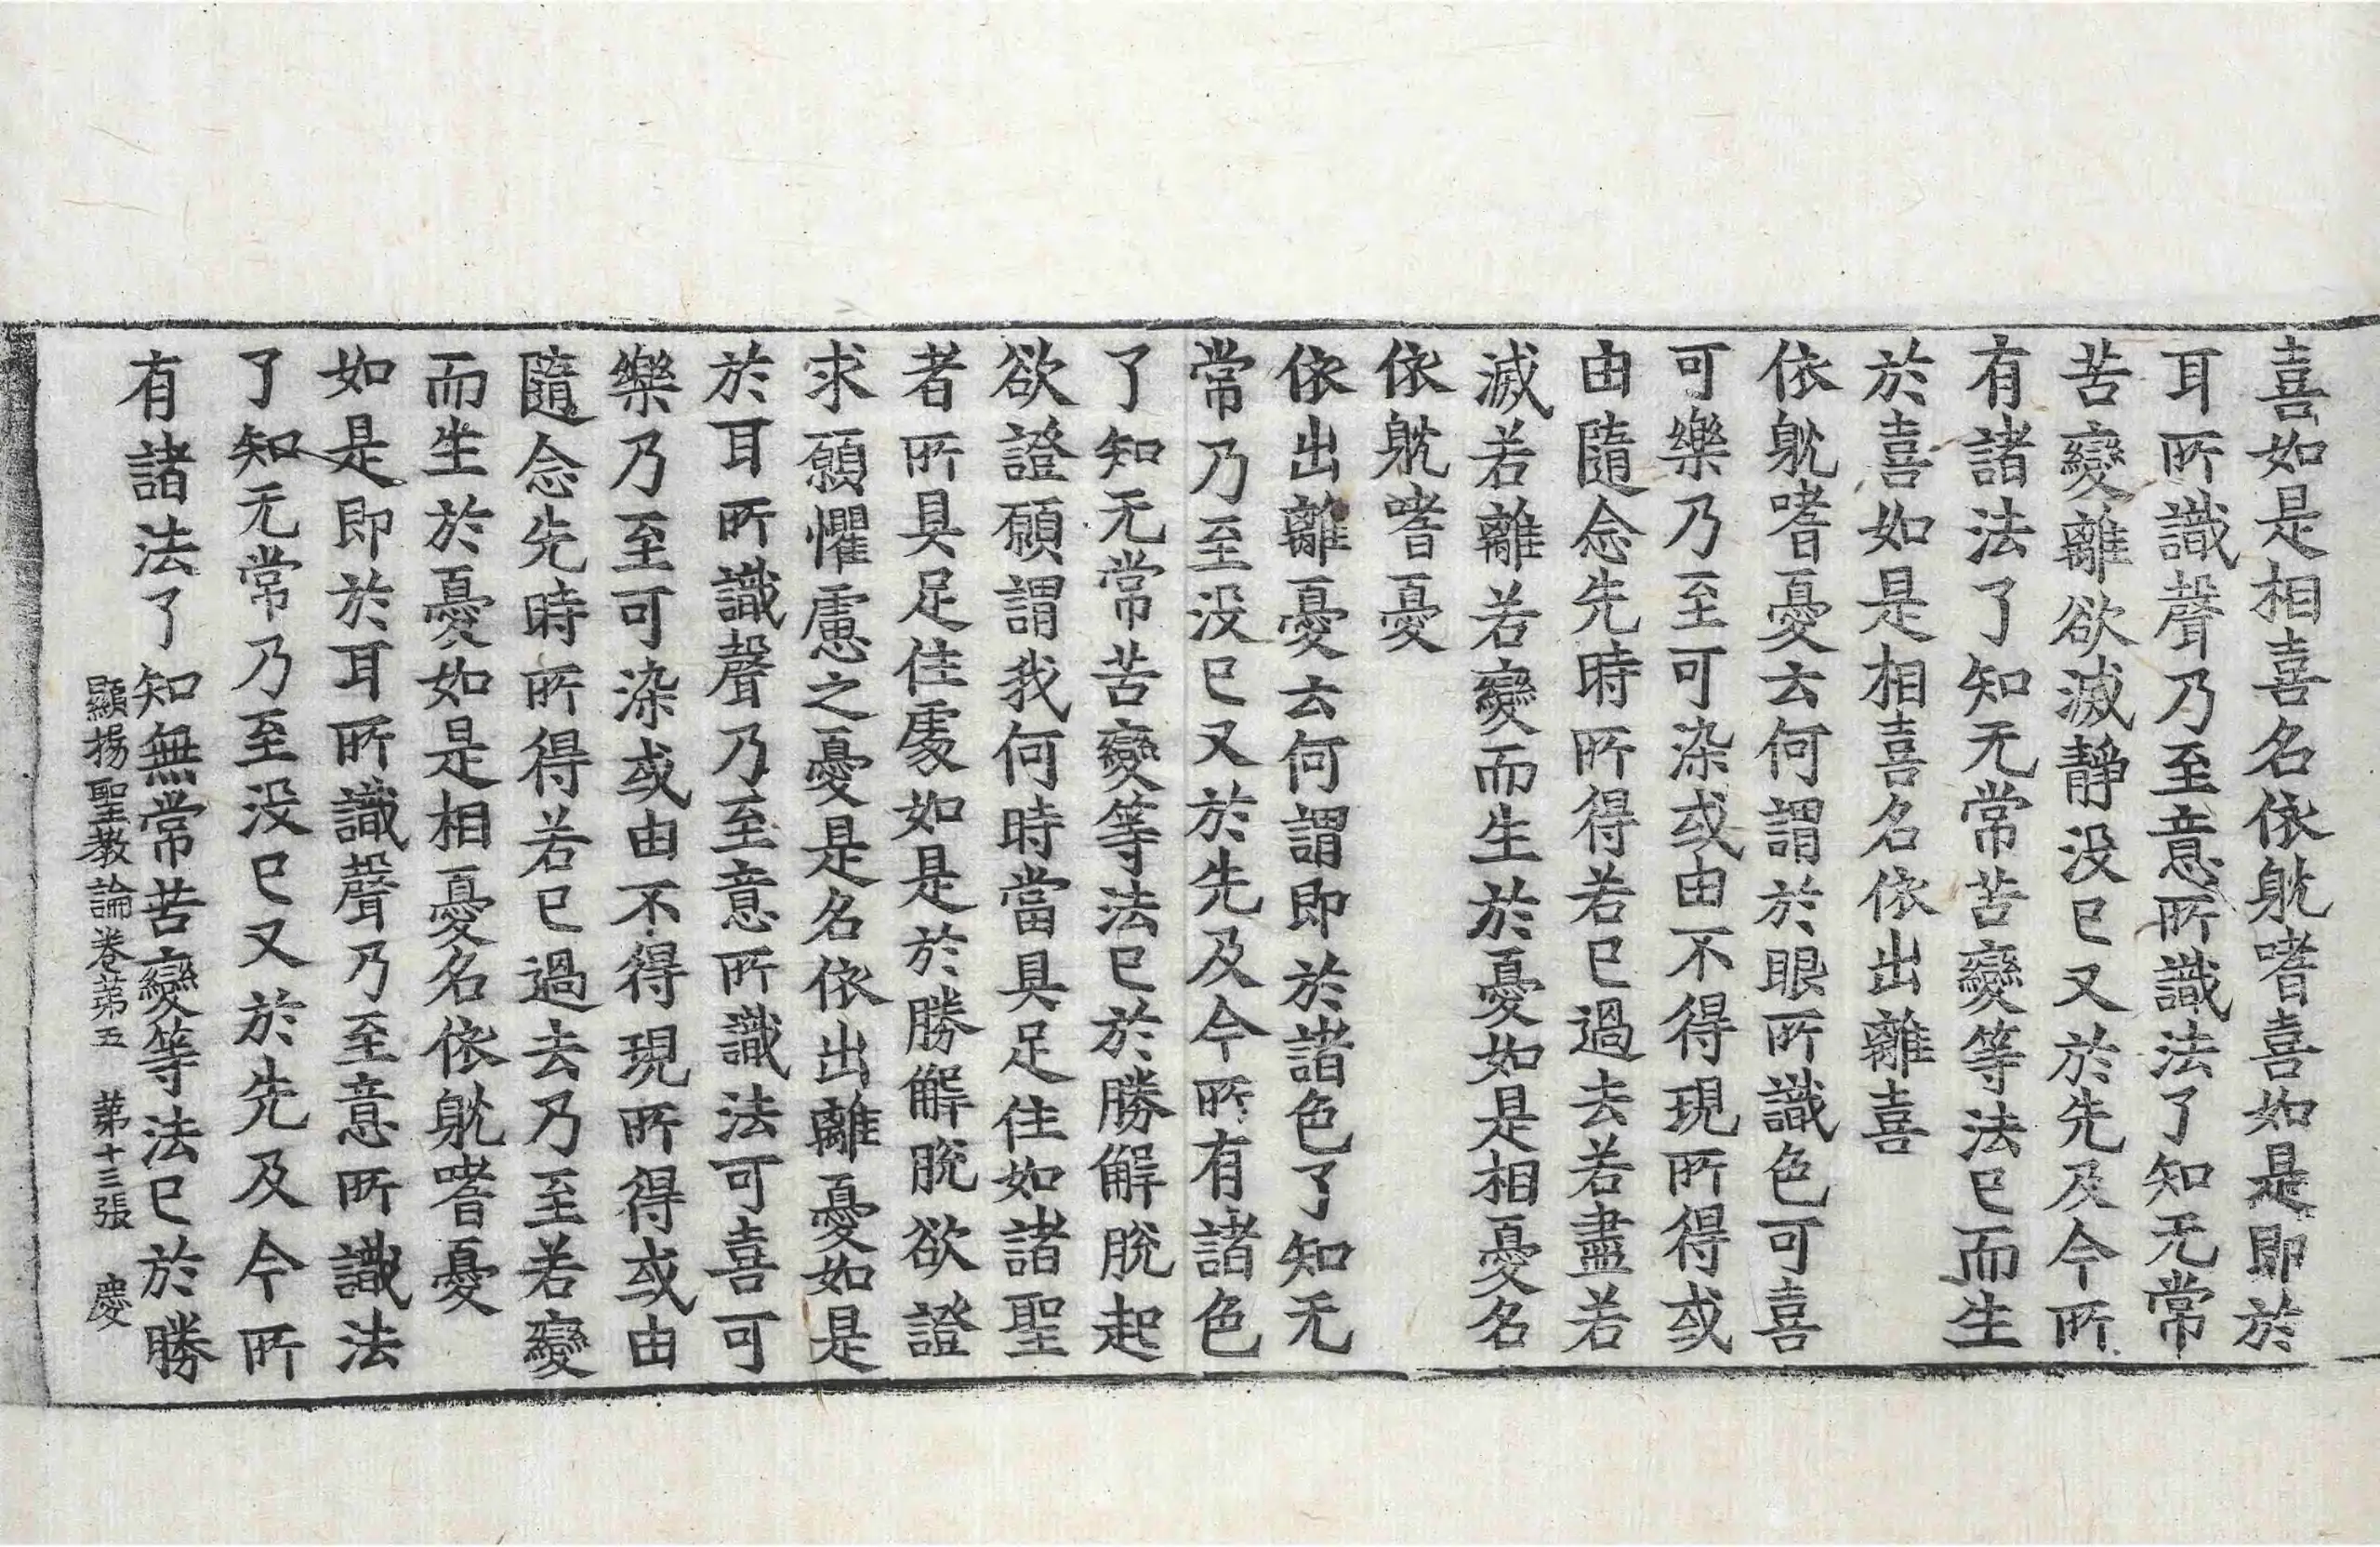 喜如是相喜名依躭嗜喜如是即於
耳所識聲乃至意所識法了知无常
苦變離欲滅靜没已又於先及今所
有諸法了知无常苦變等法已而生
於喜如是相喜名依出離喜
依躭嗜憂云何謂於眼所識色可喜
可樂乃至可染或由不得現所得或
由隨念先時所得若已過去若盡若
滅若離若變而生於憂如是相憂名
依躭嗜憂
依出離憂云何謂即於諸色了知无
常乃至没已又於先及今所有諸色
了知无常苦變等法已於勝解脫起
欲證願謂我何時當具足住如諸聖
者所具足住處如是於勝解脫欲證
求願懼慮之憂是名依出離憂如是
於耳所識聲乃至意所識法可喜可
樂乃至可染或由不得現所得或由
隨念先時所得若已過去乃至若變
而生於憂如是相憂名依躭嗜憂
如是即於耳所識聲乃至意所識法
了知无常乃至没已又於先及今所
有諸法了知無常苦變等法已於勝
顯揚聖教論卷第五 第十三張 慶